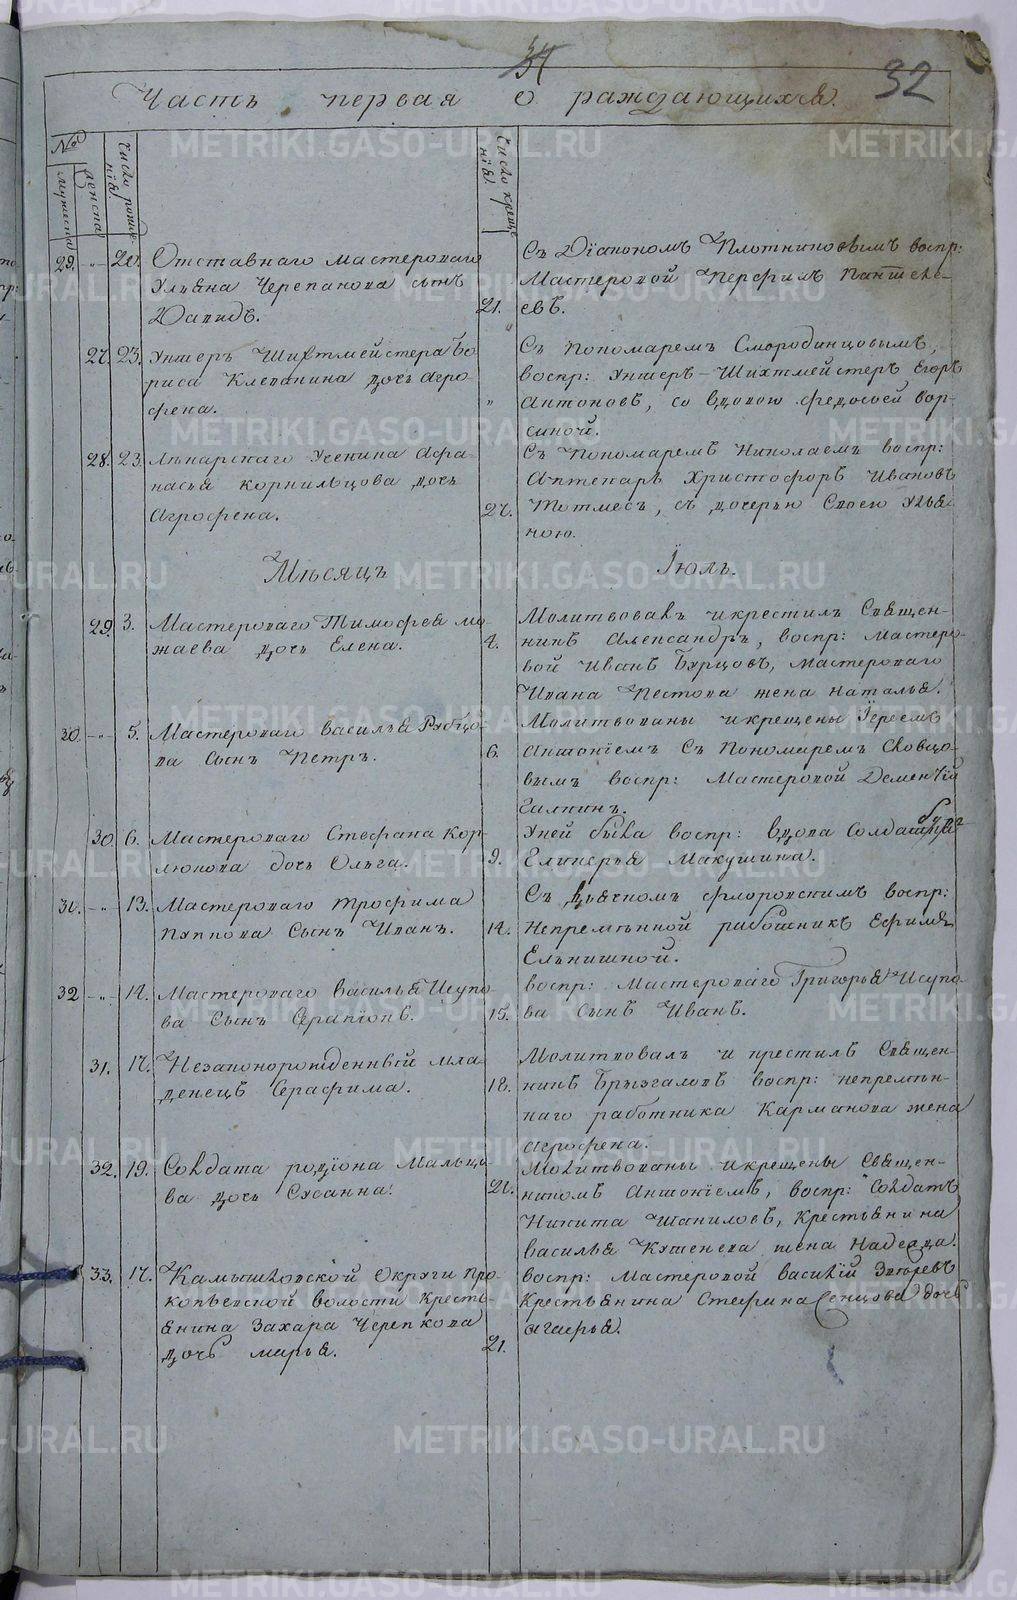 34
32
Часть первая о раждающихся.
№
мужеска
женска
число рожде-
нія
число креще-
нія
29. -"- 20. Отставнаго мастероваго
Ульяна Черепанова сынъ
Давидъ.
21.
Съ Діакономъ Плотниковымъ воспр:
Мастеровой Перфилъ Пантеле-
евъ.
27. 23. Унтеръ Шихтмейстера Бо
риса Клепинина дочь Агро-
фена.
"
Съ Пономаремъ Смородинцовымъ,
воспр: Унтеръ-Шихтмейстеръ Егоръ
Антоновъ, со вдовою Федосьей Вор-
синой.
28. 23. Лѣкарскаго Ученика Афа-
насья Корнильцова дочь
Агрофена.
27.
Съ Пономаремъ Николаемъ воспр:
Аптекарь Христофоръ Ивановъ
съ дочерью своею Улья-
ною.
Мѣсяцъ Іюль.
29. 3. Мастероваго Тимофея Мо-
жаева дочь Елена.
4.
Молитвовалъ и крестилъ Священ-
никъ Александръ, воспр: Мастеро-
вой Иванъ Бурцовъ, мастероваго
Ивана Пестова жена Наталья.
30. -"- 5. Мастероваго Василья Рубцо-
ва Сынъ Петръ.
6.
Молитвованы и крещены Іереемъ
Антоніемъ съ Пономаремъ Сковцо-
вымъ воспр: Мастеровой Дементій
Галкинъ.
30. 6. Мастероваго Стефана Кор-
люкова дочь Ольга.
9.
Уней была воспр: вдова Солдатка
Гликерья Макушина.
31. -"- 13. Мастероваго Трофима
Пупкова Сынъ Иванъ.
14.
Съ Дьячкомъ Флоровскимъ воспр:
Непремѣнной работникъ Ефимъ
32 -"- 14. Мастероваго Василья Исупо-
ва Сынъ Серапіонъ.
15.
воспр: Мастероваго Григорья Исупо-
ва сынъ Иванъ.
31. 17. Незаконорожденный мла-
денецъ Серафима.
18.
Молитвовалъ и крестилъ Священ-
никъ Брызгаловъ воспр: непремѣн-
наго работника Карманова жена
Агрофена.
32. 19. Солдата Родіона Мальцо-
ва дочь Сусанна.
21.
Молитвованы и крещены Священ-
никомъ Антоніемъ, воспр: Солдатъ
Никита Шаниловъ, Крестьянина
Василья Кутенева жена Надежда.
33. 17. Камышловской Округи Про-
копьевской волости Кресть-
янина Захара Черепкова
дочь Марья.
21.
воспр: Мастеровой Василій Зыревъ
Крестьянина Стефана Сенцова дочь
Агафья.
METRIKI.GASO-URAL.RU